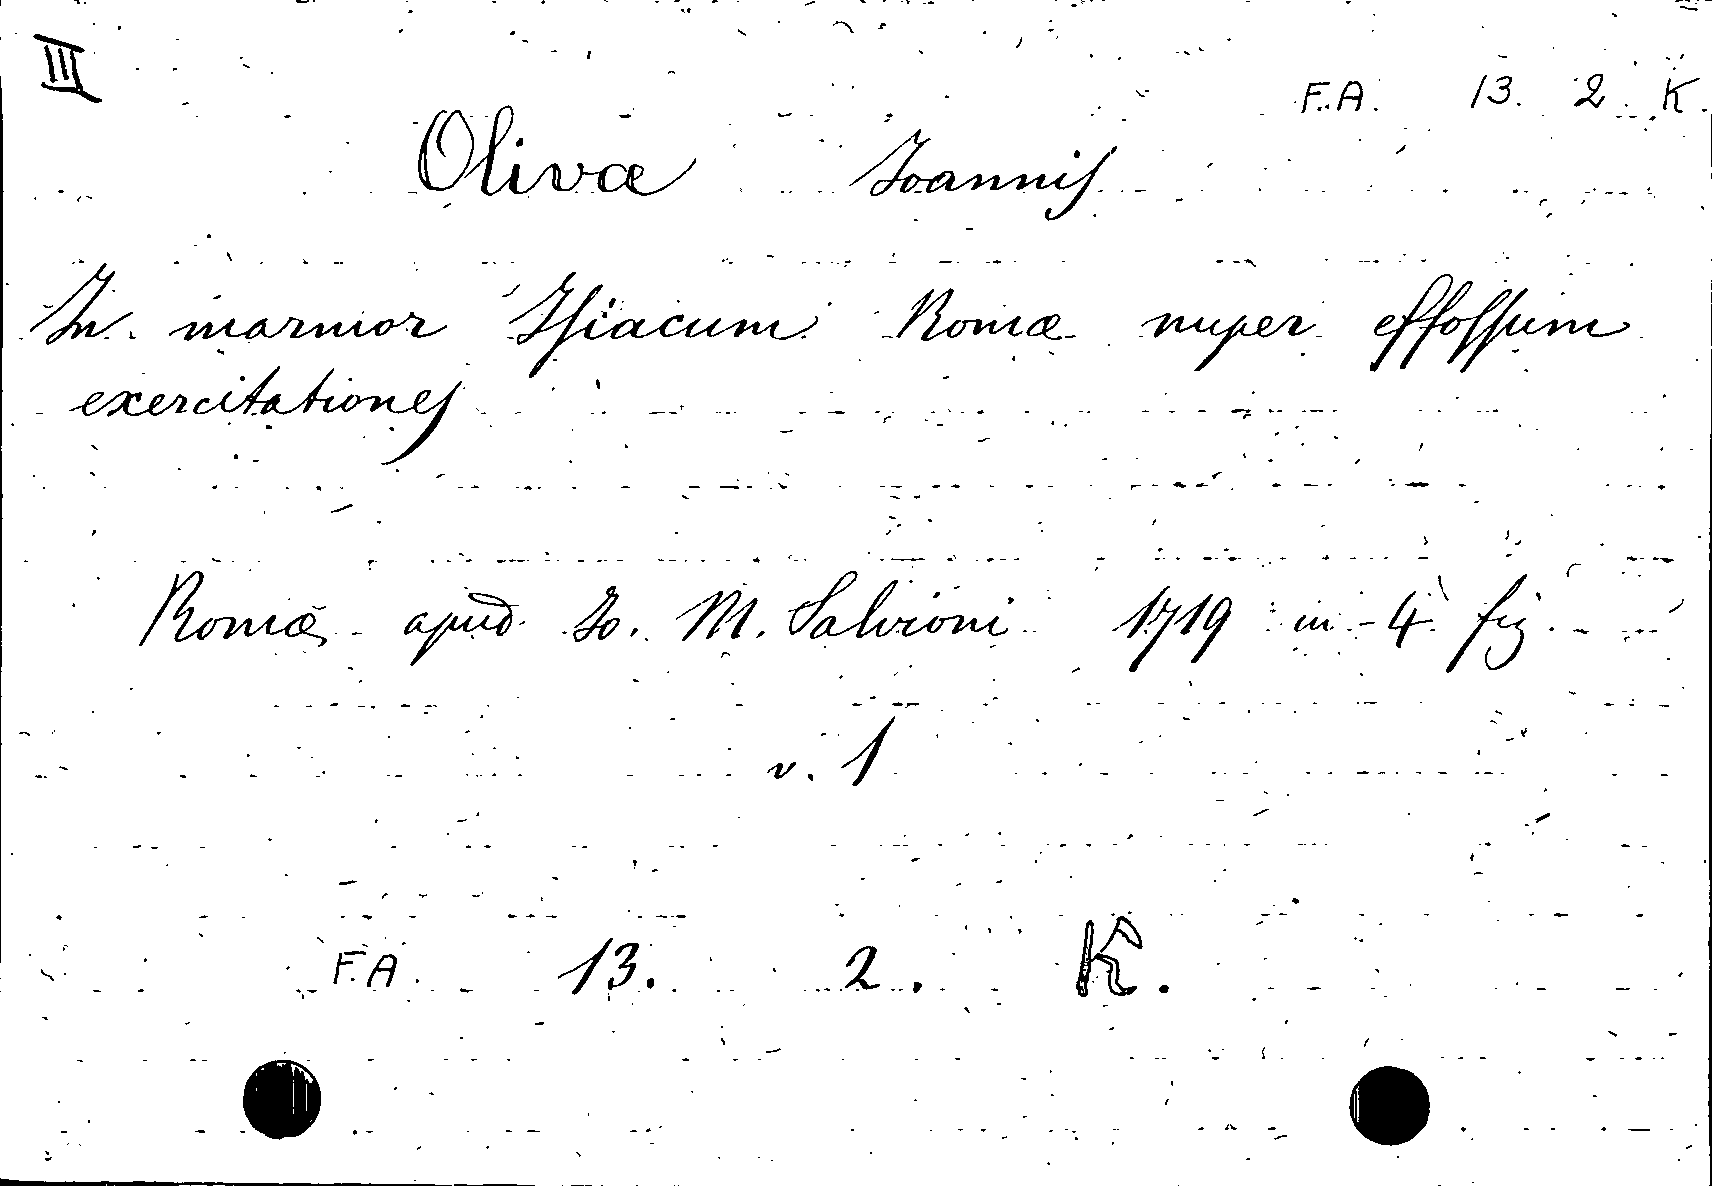 III
F.A. 13. 2. K.
Olivæ Ioannis
In marmor Isiacum Romæ nuper effossum
exercitationes
Romæ apud Io. M. Salvioni 1719 in 4 fig.
v. 1
F.A. 13. 2. K.